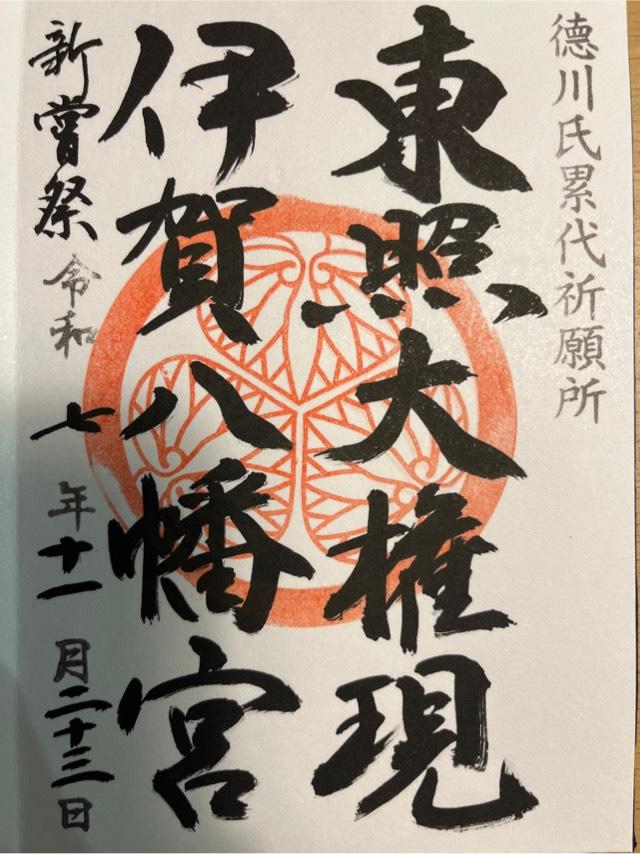 徳川氏累代祈願所
東照大権現
伊賀八幡宮
新嘗祭 令和七年十一月二十三日